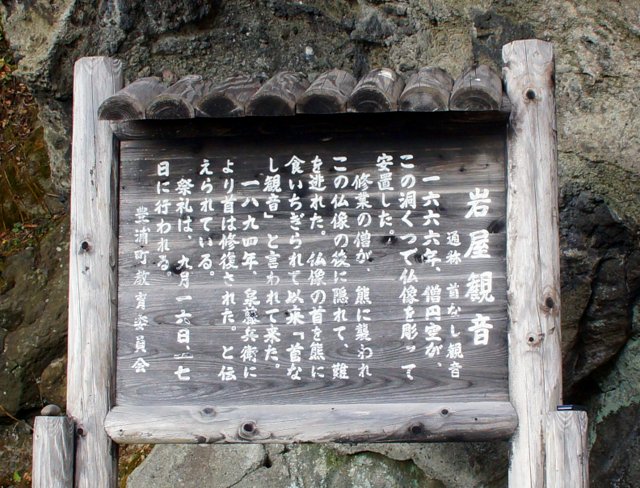 岩屋観音
通称 首なし観音
一六六六年、僧円空が、
この洞くつで仏像を彫って
安置した。
修業の僧が、熊に襲われ
この仏像の後に隠れて、難
を逃れた。仏像の首を熊に
食いちぎられて以来「首な
し観音」と言われて来た。
一八九四年、泉藤兵衛に
より首は修復された。と伝
えられている。
祭礼は、九月一六日一七
日に行われる。
豊浦町教育委員会